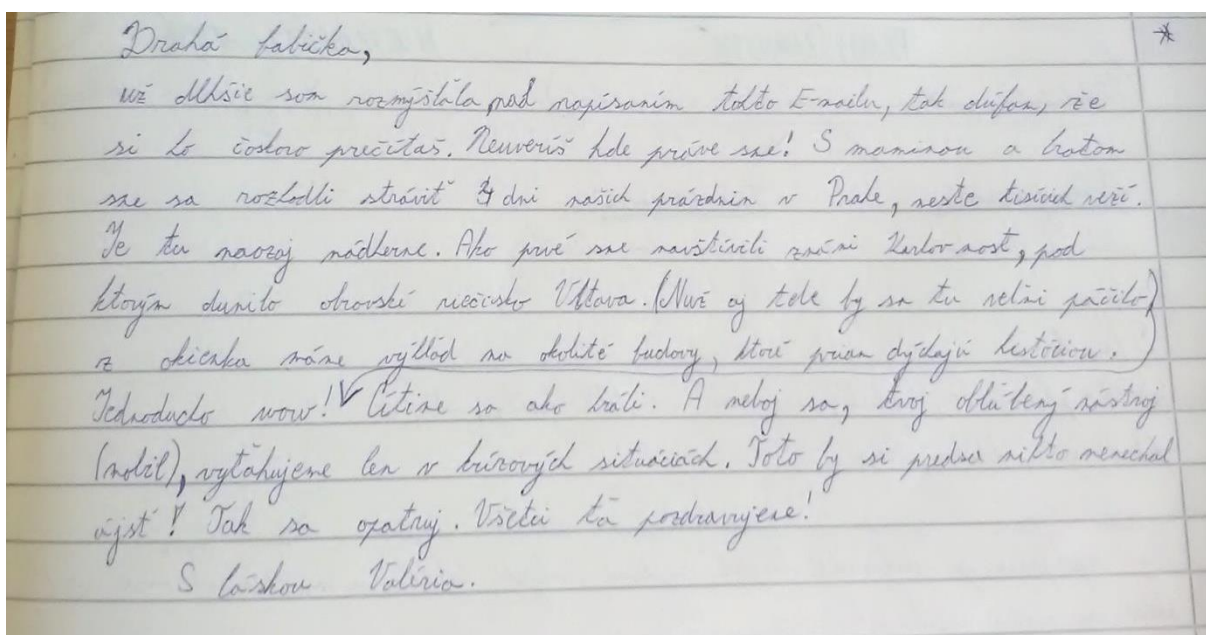 Drahá babička,
už dlhšie som rozmýšľala nad napísaním tohto E-mailu, tak dúfam, že
si ho čoskoro prečítaš. Neuveríš kde práve sme! S maminou a bratom
sme sa rozhodli stráviť 4 dni našich prázdnin v Prahe, meste tisícich veží.
Je tu naozaj nádherne. Ako prvé sme navštívili známi Karlov most, pod
ktorým dunilo obrovské riečisko Vltava. (Nuž aj tebe by sa tu veľmi páčilo)
z okienka máme výhľad na okolité budovy, ktoré priam dýchajú históriou.
Jednoducho wow! Cítime sa ako králi. A neboj sa, tvoj obľúbený nástroj
(mobil), vyťahujeme len v krízových situáciách. Toto by si predsa nikto nenechal
ujsť! Tak sa opatruj. Všetci ťa pozdravujeme!
S láskou Valéria.